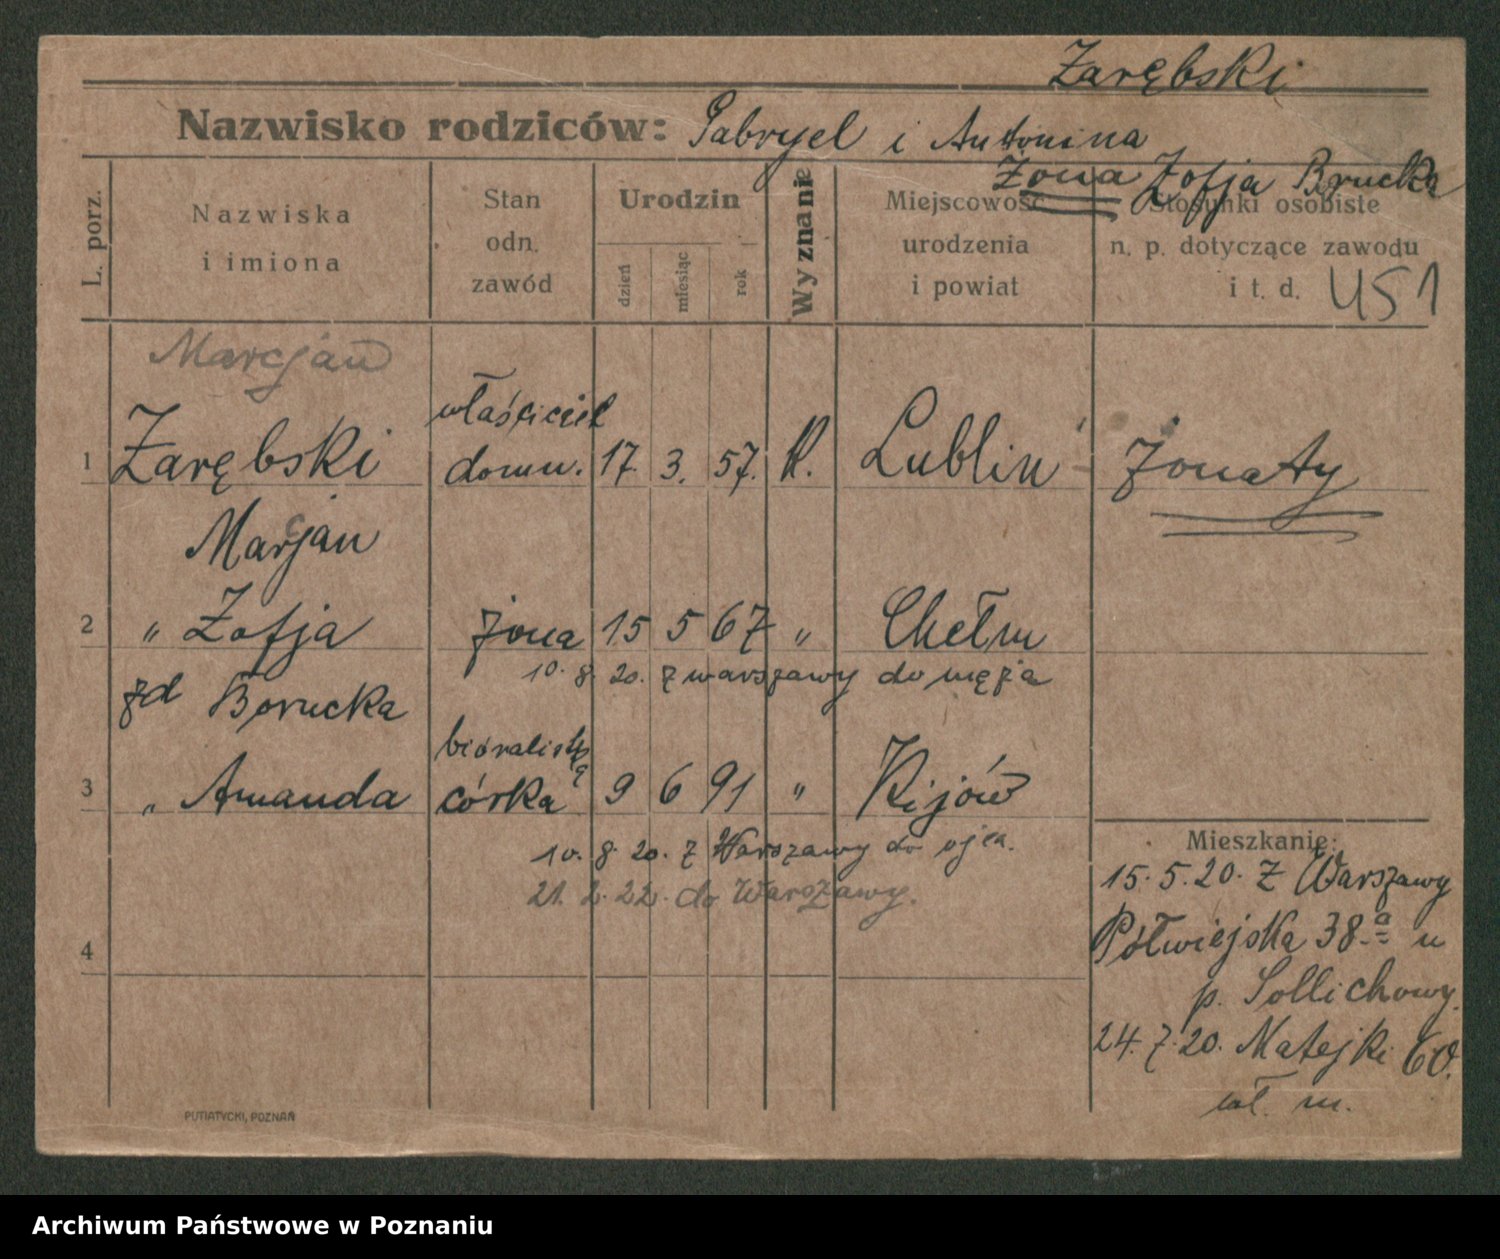 Zarębski
Nazwisko rodziców: Gabryel i Antonina
Żona Zofja Borucka
L. porz.
Nazwiska
i imiona
Stan
odn.
zawód
Urodzin
dzień
miesiąc
rok
Wyznanie
Miejscowość
urodzenia
i powiat
Stosunki osobiste
n. p. dotyczące zawodu
i t. d.
Marcjan
właściciel
1 Zarębski domu. 17. 3. 57. K. Lublin żonaty
Marjan
2 „ Zofja żona 15 5 67 „ Chełm
10. 8. 20. z warszawy do męża
zd Borucka
biuralistka
3 „ Amanda córka 9 6 91 „ Kijów
10. 8. 20. z Warszawy do ojca.
21. 2. 22. do Warszawy.
4
Mieszkanie:
15. 5. 20. Z Warszawy
Półwiejska 38.a u
p. Sollichowy.
24. 7. 20. Matejki 60.
wł. m.
PUTIATYCKI, POZNAŃ
Archiwum Państwowe w Poznaniu